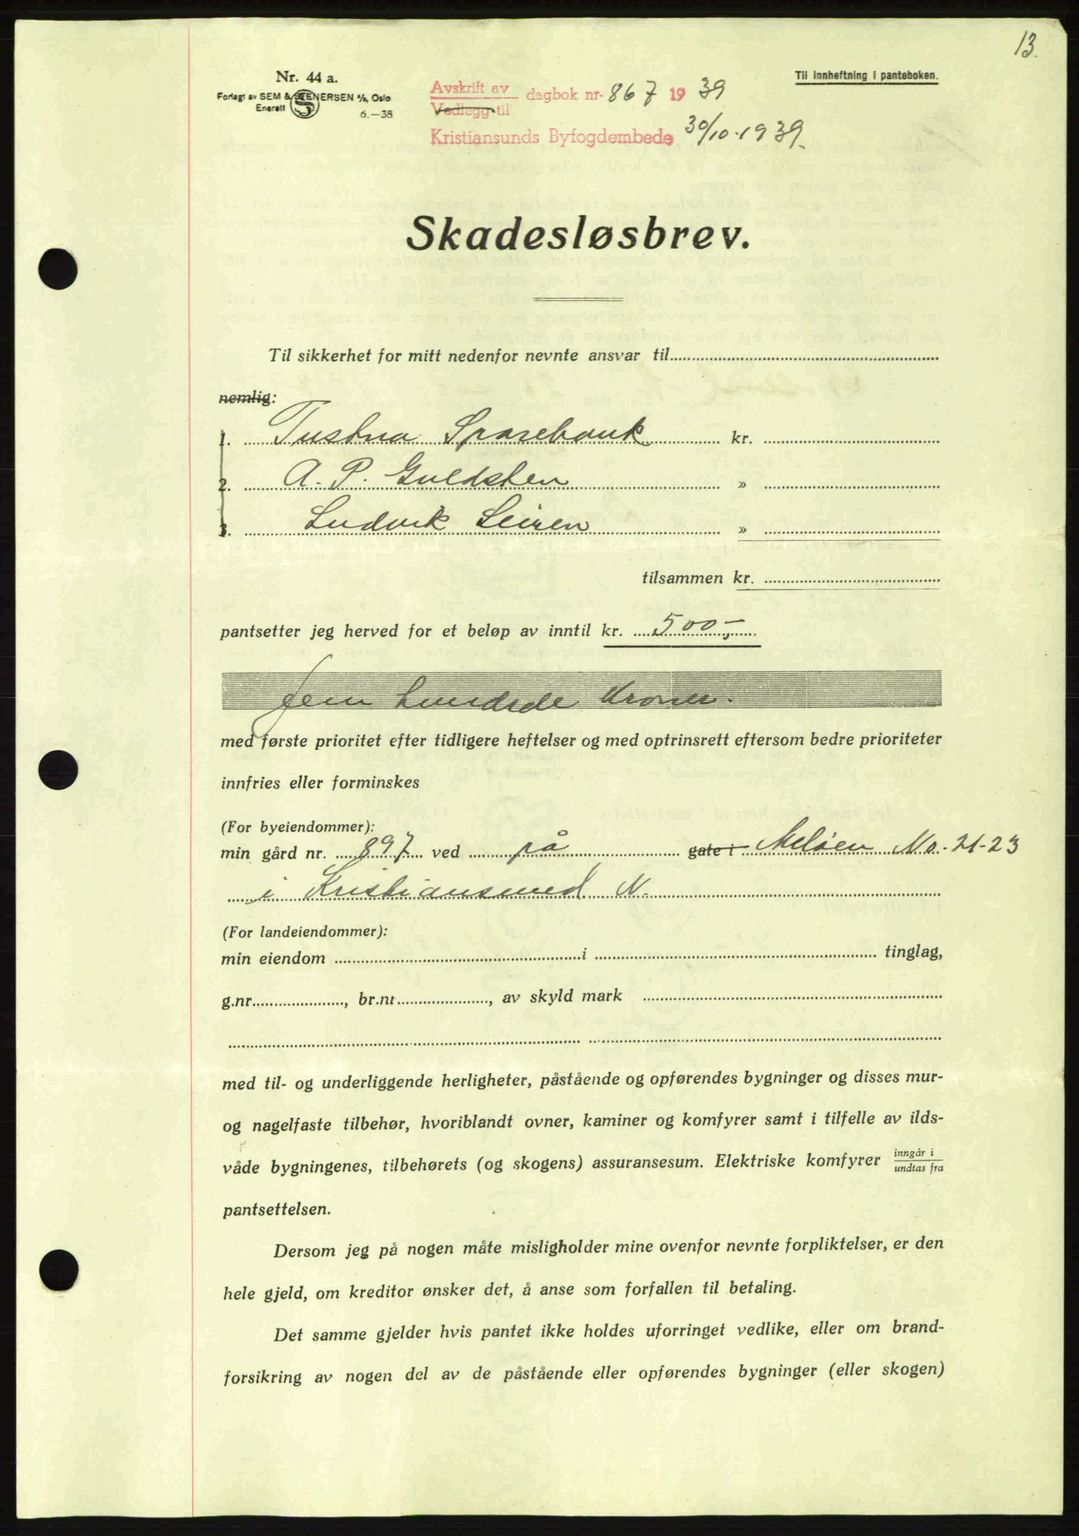 13.
Nr. 44 a.
Forlagt av SEM & STENERSEN A/S, Oslo
Enerett
6.—38
Til innheftning i panteboken.
Avskrift av
Vedlegg til
dagbok nr. 867 1939
Kristiansunds Byfogdembede 30/10-1939.
Skadesløsbrev.
Til sikkerhet for mitt nedenfor nevnte ansvar til
nemlig:
1. Tustna Sparebank kr.
2. A. P. Guldsten »
3. Ludvik Leiren »
tilsammen kr.
pantsetter jeg herved for et beløp av inntil kr. 500,-
Fem hundrede Kroner.
med første prioritet efter tidligere heftelser og med optrinsrett eftersom bedre prioriteter
innfries eller forminskes
(For byeiendommer):
min gård nr. 897 ved på gate i Meløen No. 21-23
i Kristiansund N.
(For landeiendommer):
min eiendom i tinglag,
g.nr., br.nr., av skyld mark
med til- og underliggende herligheter, påstående og opførendes bygninger og disses mur-
og nagelfaste tilbehør, hvoriblandt ovner, kaminer og komfyrer samt i tilfelle av ilds-
våde bygningenes, tilbehørets (og skogens) assuransesum. Elektriske komfyrer inngår i
undtas fra
pantsettelsen.
Dersom jeg på nogen måte misligholder mine ovenfor nevnte forpliktelser, er den
hele gjeld, om kreditor ønsker det, å anse som forfallen til betaling.
Det samme gjelder hvis pantet ikke holdes uforringet vedlike, eller om brand-
forsikring av nogen del av de påstående eller opførendes bygninger (eller skogen)